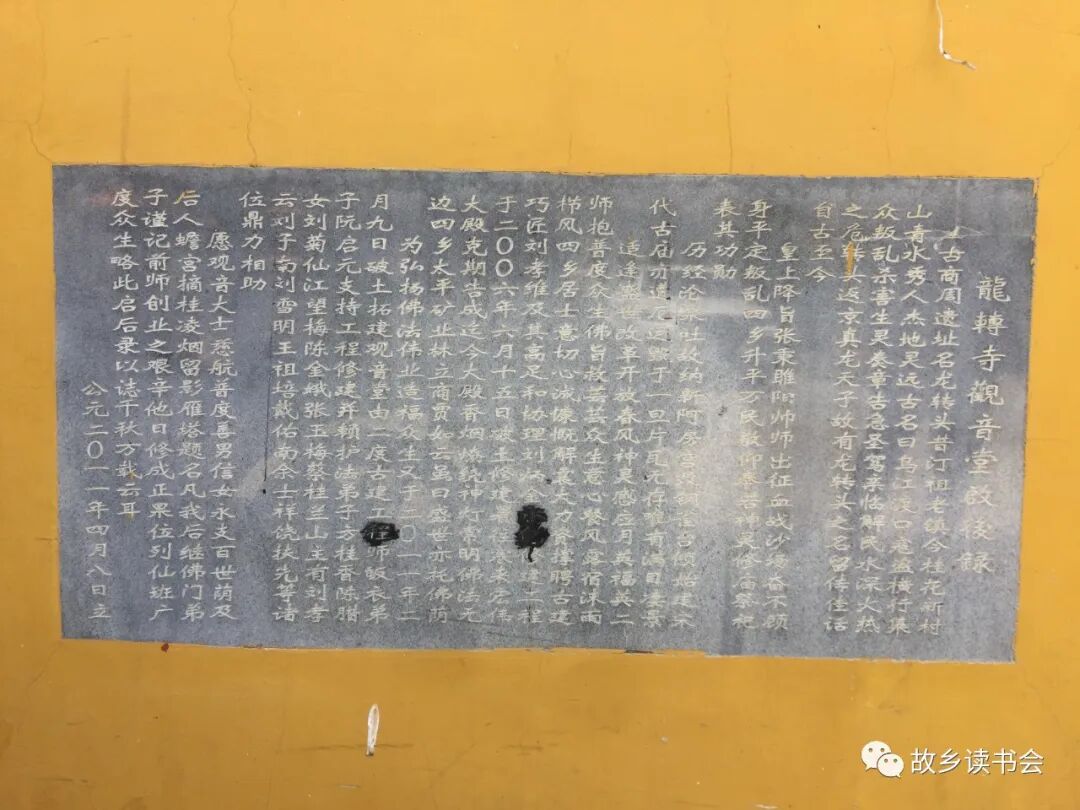 龍轉寺觀音堂啟後錄
上古商周遗址名龙转头昔汀祖老镇今桂花新村
山青水秀人杰地灵远古名曰乌江渡口寇盗横行集
众叛乱杀害生灵奏章告急圣驾亲临解民水深火热
之危转头返京真龙天子故有龙转头之名留传佳话
自古至今
皇上降旨张秉睢阳师师出征血战沙场奋不顾
身平定叛乱四乡升平万民敬仰塞菩神灵修庙祭祀
表其功勋
历经沧桑吐故纳新阿房宫
代古庙亦遭毁于一旦片瓦无存唯有满目
适逢盛世改革开放春风神灵感应月英福英二
师抱普度众生佛旨携芸芸众生意心餐风露宿沐雨
栉风四乡居士意切心诚慷慨解囊大力支撑聘古建
巧匠刘孝维及其高足和协理刘修建工程
于二〇〇六年六月十五日破土修建
大殿克期告成迄今大殿香烟神灯常明佛法无
边四乡太平矿业林立商贾如云虽曰盛世亦托佛荫
为弘扬佛法伟业造福众生又于二〇一一年二
月九日破土拓建观音堂由二度古建工程师皈衣弟
子阮启元支持工程修建并赖护法弟子方桂香陈腊
女刘菊仙江望梅陈金娥张玉梅蔡桂兰山主有刘孝
云刘子南刘雪明王祖培戴佑南余士祥饶扶先等诸
位鼎力相助
愿观音大士慈航普度善男信女永支百世荫及
后人蟾宫摘桂凌烟留影雁塔题名凡我后继佛门弟
子谨记前师创业之艰辛他日修成正果位列仙班广
度众生略此启后录以志千秋万载云耳
公元二〇一一年四月八日立
故乡读书会